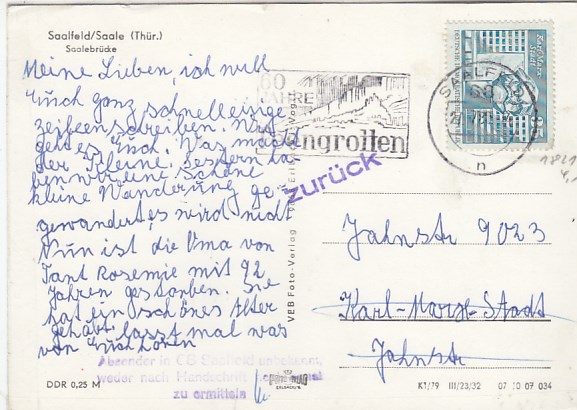 Saalfeld/Saale (Thür.)
Saalebrücke
Meine Lieben, ich will
Euch ganz schnell einige
Zeilen schreiben. Wie
geht es Euch. Was macht
der Kleine. Gestern ha-
ben wir eine schöne
kleine Wanderung ge-
gewandert, es wird nicht
Nun ist die Oma von
Tant Rosemie mit 92
Jahren gestorben. Sie
hat ein schönes Alter
gehabt. Lasst mal was
von Euch hören
Absender in CB Saalfeld unbekannt,
weder nach Handschrift
zu ermitteln
DDR 0,25 M
VEB Foto-Verlag
60
JAHRE
ngrotten
SAALFELD
n
Karl-Marx-
Stadt
35
zurück
Jahnstr 9023
Karl-Marx-Stadt
Jahnstr
K1/79 III/23/32 07 10 07 034